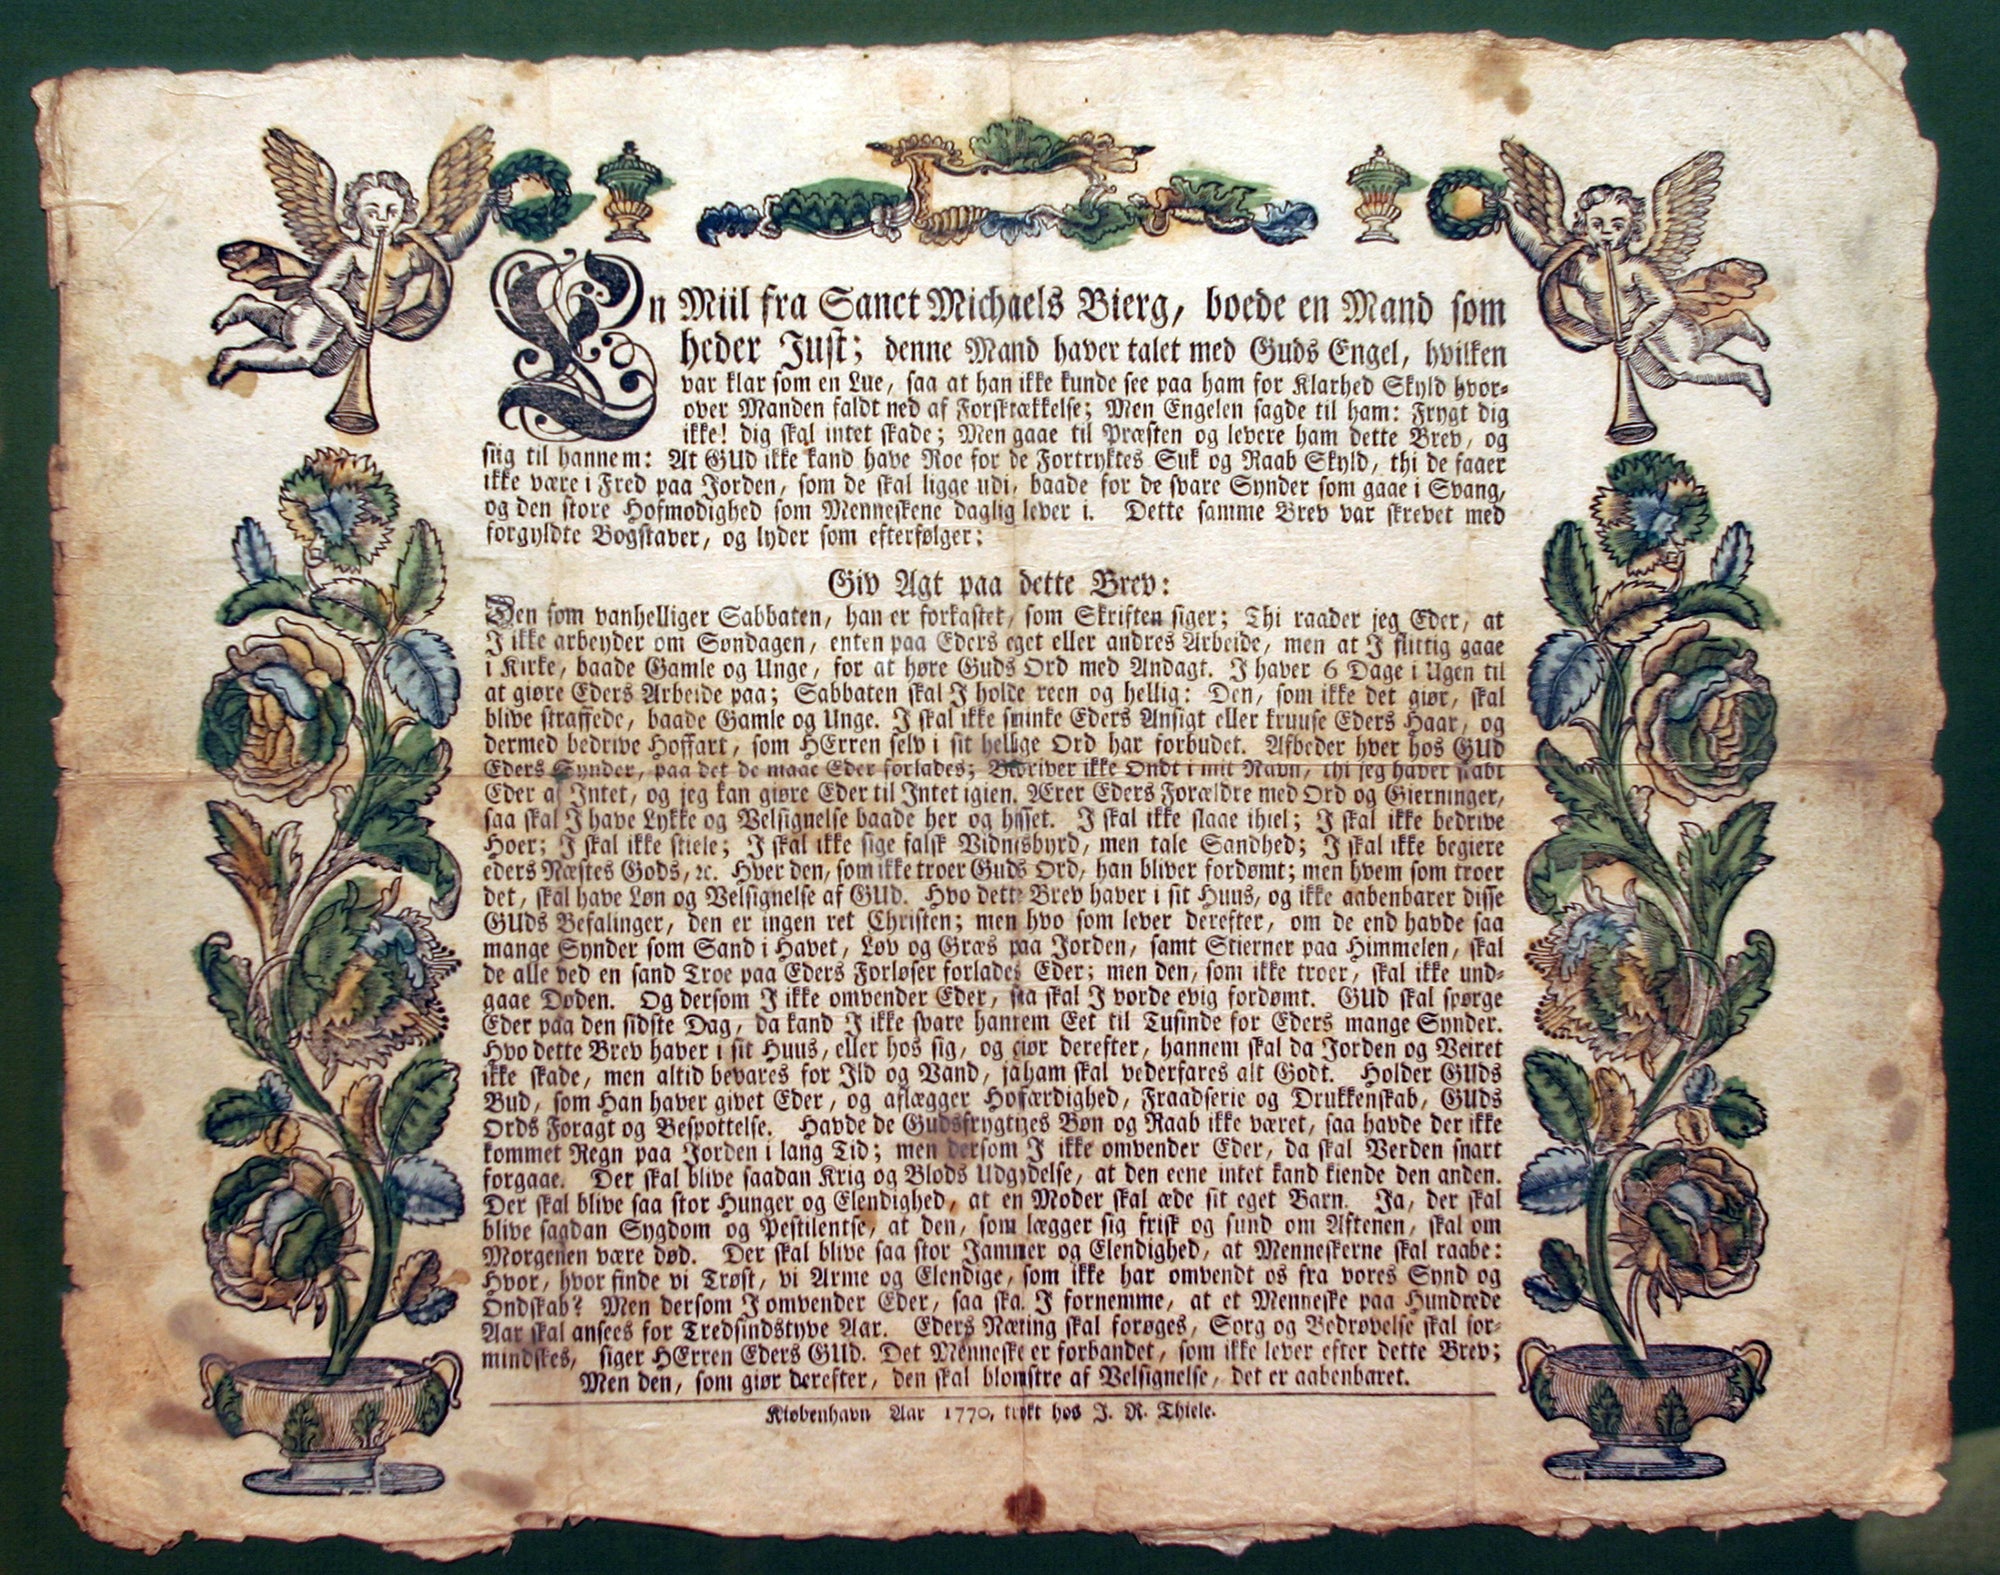 En Miil fra Sanct Michaels Bierg, boede en Mand som
heder Just; denne Mand haver talet med Guds Engel, hvilken
var klar som en Lue, saa at han ikke kunde see paa ham for Klarhed Skyld hvor-
over Manden faldt ned af Forskrækkelse; Men Engelen sagde til ham: Frygt dig
ikke! dig skal intet skade; Men gaae til Præsten og levere ham dette Brev, og
siig til hannem: At GUd ikke kand have Roe for de Fortryktes Suk og Raab Skyld, thi de faaer
ikke være i Fred paa Jorden, som de skal ligge udi, baade for de svare Synder som gaae i Svang,
og den store Hofmodighed som Menneskene daglig lever i. Dette samme Brev var skrevet med
forgyldte Bogstaver, og lyder som efterfølger:
Giv Agt paa dette Brev:
Den som vanhelliger Sabbaten, han er forkastet, som Skriften siger; Thi raader jeg Eder, at
I ikke arbeyder om Søndagen, enten paa Eders eget eller andres Arbeide, men at I flittig gaae
i Kirke, baade Gamle og Unge, for at høre Guds Ord med Andagt. I haver 6 Dage i Ugen til
at giøre Eders Arbeide paa; Sabbaten skal I holde reen og hellig: Den, som ikke det giør, skal
blive straffede, baade Gamle og Unge. I skal ikke sminke Eders Ansigt eller kruuse Eders Haar, og
dermed bedrive Hoffart, som HErren selv i sit hellige Ord har forbudet. Afbeder hver hos GUd
Eders Synder, paa det de maae Eder forlades; Bedriver ikke Ondt i mit Navn, thi jeg haver skabt
Eder af Intet, og jeg kan giøre Eder til Intet igien. Ærer Eders Forældre med Ord og Gierninger,
saa skal I have Lykke og Velsignelse baade her og hisset. I skal ikke slaae ihiel; I skal ikke bedrive
Hoer; I skal ikke stiele; I skal ikke sige falsk Vidnisbyrd, men tale Sandhed; I skal ikke begiere
eders Næstes Gods, ꝛc. Hver den, som ikke troer Guds Ord, han bliver fordømt; men hvem som troer
det, skal have Løn og Velsignelse af GUd. Hvo dette Brev haver i sit Huus, og ikke aabenbarer disse
GUds Befalinger, den er ingen ret Christen; men hvo som lever derefter, om de end havde saa
mange Synder som Sand i Havet, Løv og Græs paa Jorden, samt Stierner paa Himmelen, skal
de alle ved en sand Troe paa Eders Forløser forlades Eder; men den, som ikke troer, skal ikke und-
gaae Døden. Og dersom I ikke omvender Eder, saa skal I vorde evig fordømt. GUd skal spørge
Eder paa den sidste Dag, da kand I ikke svare hannem Eet til Tusinde for Eders mange Synder.
Hvo dette Brev haver i sit Huus, eller hos sig, og giør derefter, hannem skal da Jorden og Veiret
ikke skade, men altid bevares for Ild og Vand, ja ham skal vederfares alt Godt. Holder GUds
Bud, som Han haver givet Eder, og aflægger Hofærdighed, Fraadserie og Drukkenskab, GUds
Ords Foragt og Bespottelse. Havde de Gudsfrygtiges Bøn og Raab ikke været, saa havde der ikke
kommet Regn paa Jorden i lang Tid; men dersom I ikke omvender Eder, da skal Verden snart
forgaae. Der skal blive saadan Krig og Blods Udgydelse, at den eene intet kand kiende den anden.
Der skal blive saa stor Hunger og Elendighed, at en Moder skal æde sit eget Barn. Ja, der skal
blive saadan Sygdom og Pestilentse, at den, som lægger sig frisk og sund om Aftenen, skal om
Morgenen være død. Der skal blive saa stor Jammer og Elendighed, at Menneskerne skal raabe:
Hvor, hvor finde vi Trøst, vi Arme og Elendige, som ikke har omvendt os fra vores Synd og
Ondskab? Men dersom I omvender Eder, saa skal I fornemme, at et Menneske paa Hundrede
Aar skal ansees for Tredsindstyve Aar. Eders Næring skal forøges, Sorg og Bedrøvelse skal for-
mindskes, siger HErren Eders GUd. Det Menneske er forbandet, som ikke lever efter dette Brev;
Men den, som giør derefter, den skal blomstre af Velsignelse, det er aabenbaret.
Kiøbenhavn Aar 1770, trykt hos J. R. Thiele.